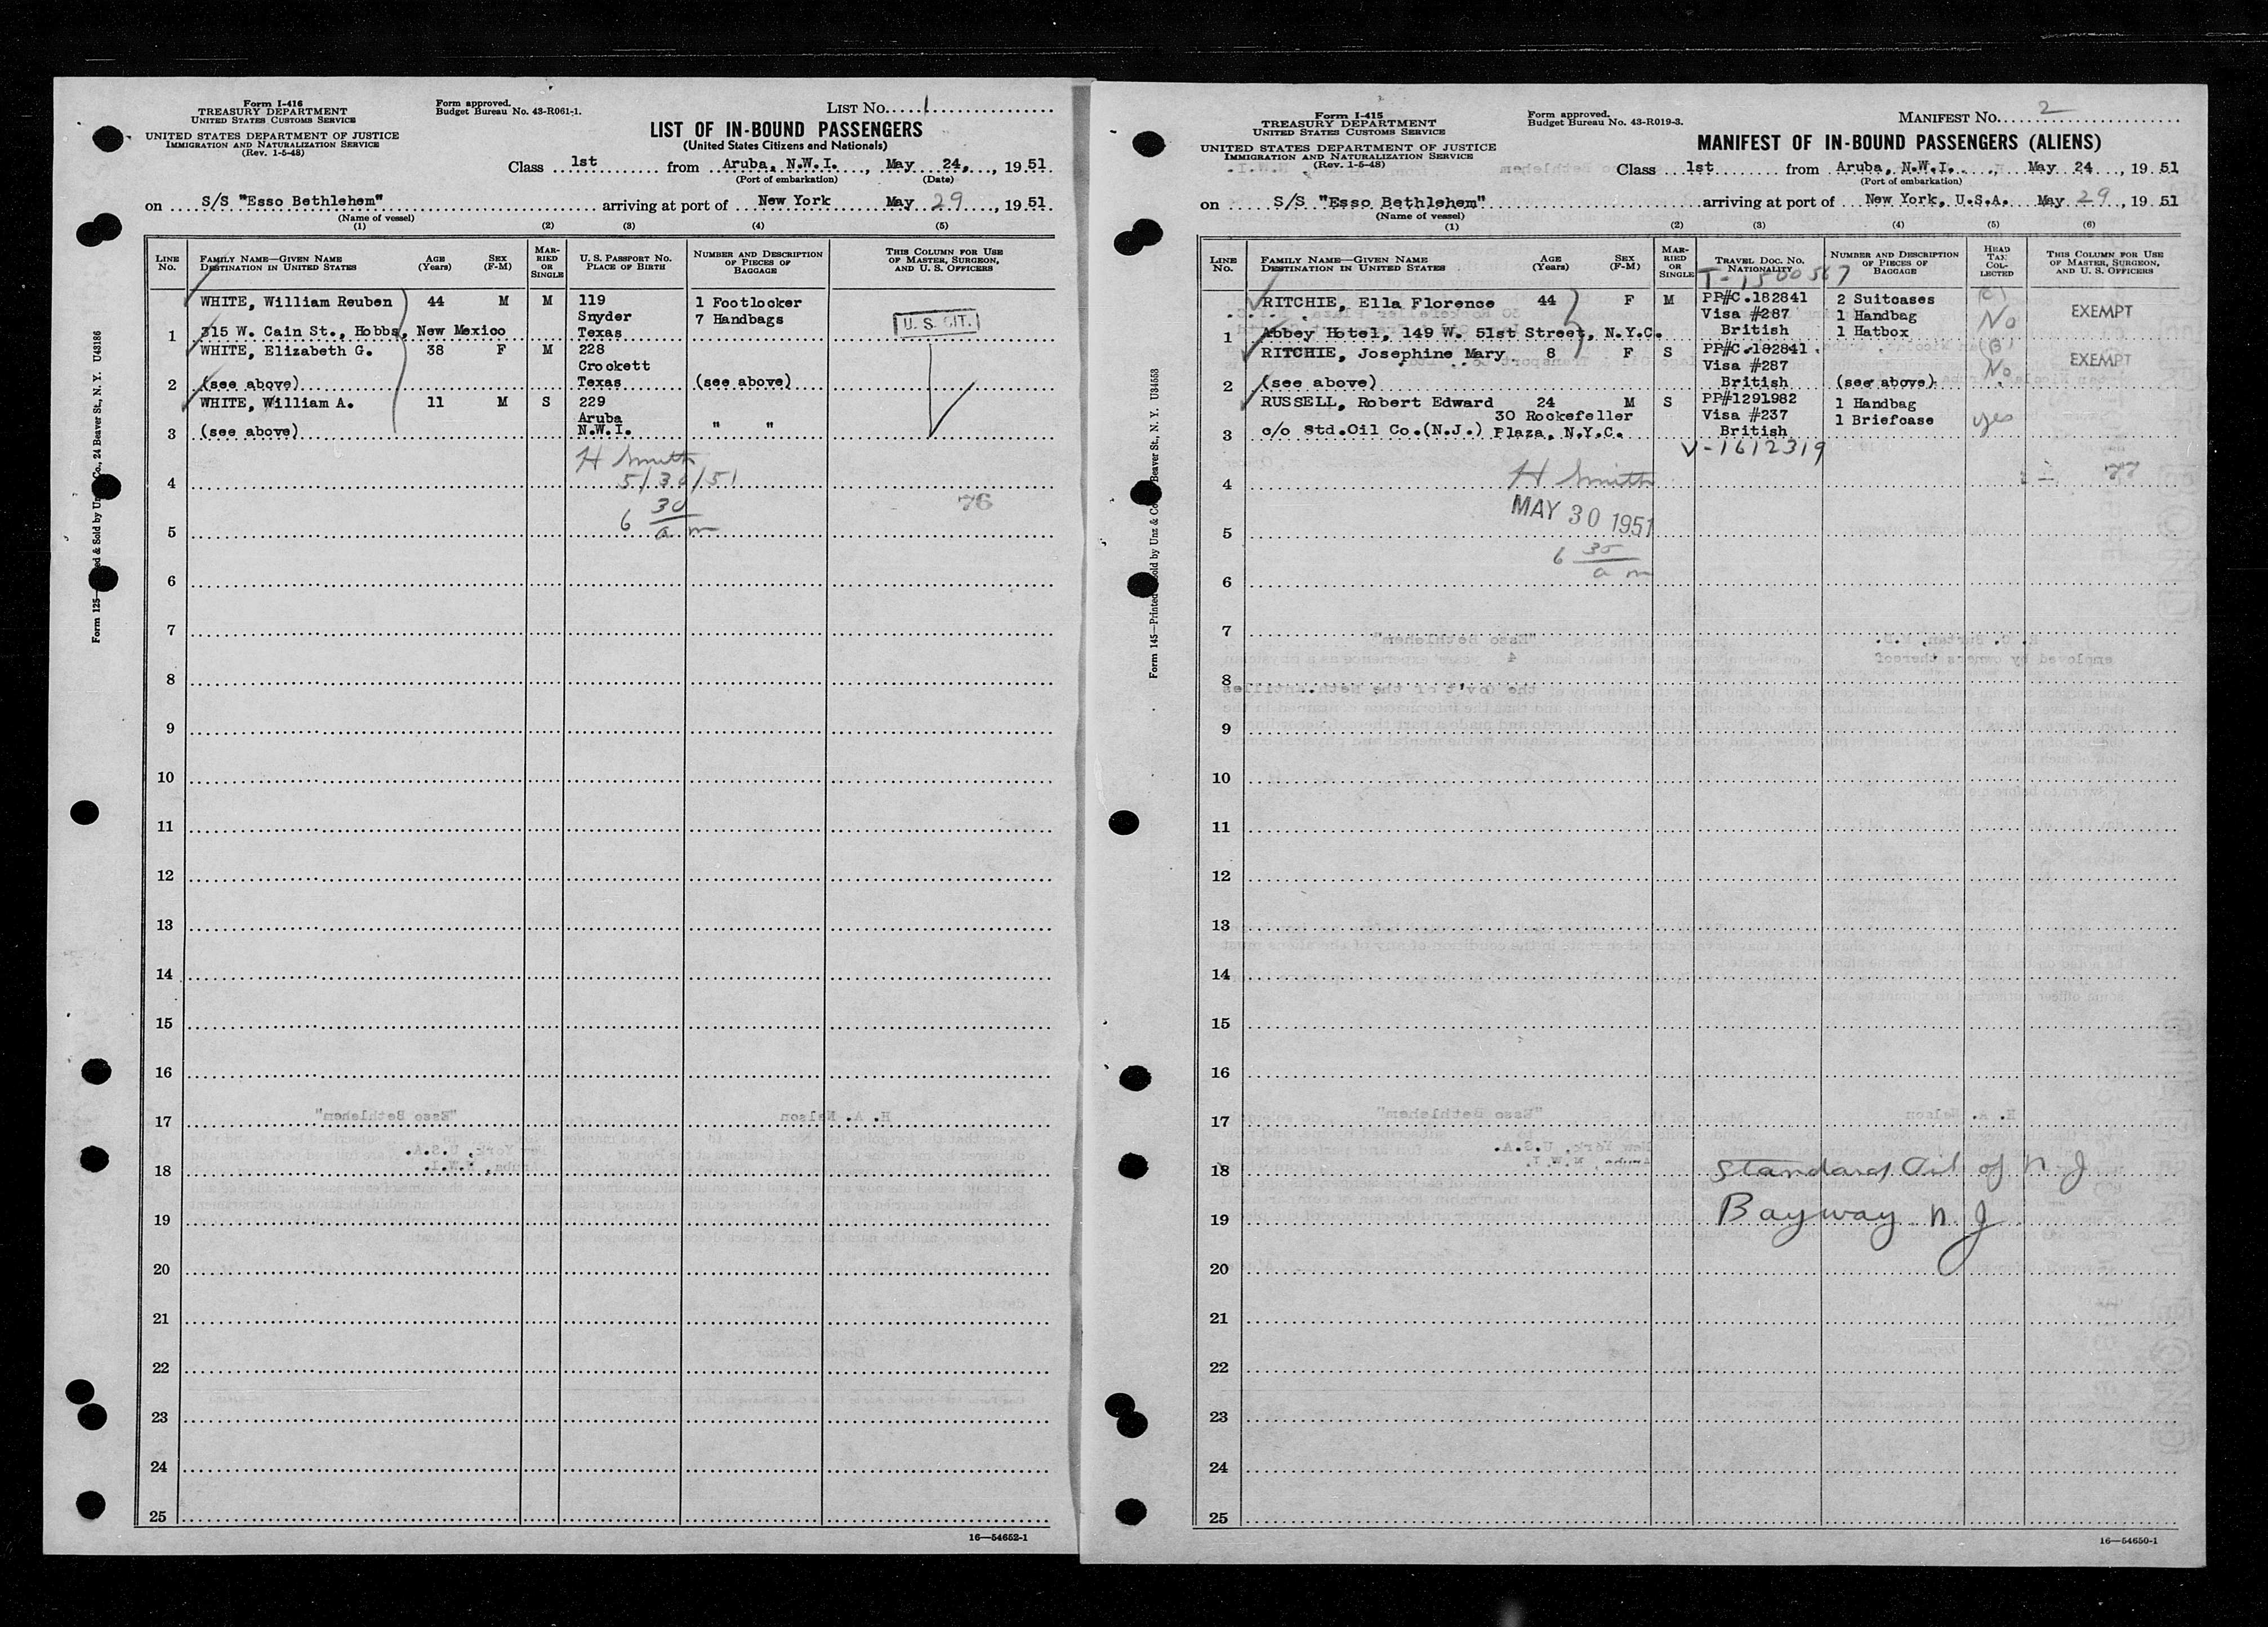 Form I-416
TREASURY DEPARTMENT
UNITED STATES CUSTOMS SERVICE
UNITED STATES DEPARTMENT OF JUSTICE
IMMIGRATION AND NATURALIZATION SERVICE
(Rev. 1-5-48)
Form approved.
Budget Bureau No. 43-R061-1.
LIST NO. 1
LIST OF IN-BOUND PASSENGERS
(United States Citizens and Nationals)
Class 1st from Aruba, N.W.I., May 24, 1951
(Port of embarkation) (Date)
on S/S "Esso Bethlehem" arriving at port of New York May 29, 1951
(Name of vessel)
(1) (2) (3) (4) (5)
LINE NO.
FAMILY NAME—GIVEN NAME
DESTINATION IN UNITED STATES
AGE (Years)
SEX (F-M)
MARRIED OR SINGLE
U. S. PASSPORT NO.
PLACE OF BIRTH
NUMBER AND DESCRIPTION OF PIECES OF BAGGAGE
THIS COLUMN FOR USE OF MASTER, SURGEON, AND U. S. OFFICERS
WHITE, William Reuben 44 M M 119 1 Footlocker
Snyder 7 Handbags
1 315 W. Cain St., Hobbs, New Mexico Texas U. S. CIT.
WHITE, Elizabeth G. 38 F M 228
Crockett
2 (see above) Texas (see above)
WHITE, William A. 11 M S 229
Aruba
3 (see above) N.W.I. " "
H Smith
4 5/30/51
76
6 30 a m
5
6
7
8
9
10
11
12
13
14
15
16
17
18
19
20
21
22
23
24
25
16—54652-1
Form I-415
TREASURY DEPARTMENT
UNITED STATES CUSTOMS SERVICE
UNITED STATES DEPARTMENT OF JUSTICE
IMMIGRATION AND NATURALIZATION SERVICE
(Rev. 1-5-48)
Form approved.
Budget Bureau No. 43-R019-3.
MANIFEST NO. 2
MANIFEST OF IN-BOUND PASSENGERS (ALIENS)
Class 1st from Aruba, N.W.I., May 24, 1951
(Port of embarkation)
on S/S "Esso Bethlehem" arriving at port of New York, U.S.A. May 29, 1951
(Name of vessel)
(1) (2) (3) (4) (5) (6)
LINE NO.
FAMILY NAME—GIVEN NAME
DESTINATION IN UNITED STATES
AGE (Years)
SEX (F-M)
MARRIED OR SINGLE
TRAVEL DOC. NO.
NATIONALITY
NUMBER AND DESCRIPTION OF PIECES OF BAGGAGE
HEAD TAX COLLECTED
THIS COLUMN FOR USE OF MASTER, SURGEON, AND U. S. OFFICERS
T-1500567
RITCHIE, Ella Florence 44 F M PP#C.182841 2 Suitcases
Visa #287 1 Handbag No EXEMPT
1 Abbey Hotel, 149 W. 51st Street, N.Y.C. British 1 Hatbox
RITCHIE, Josephine Mary 8 F S PP#C.182841
Visa #287 No EXEMPT
2 (see above) British (see above)
RUSSELL, Robert Edward 24 M S PP#1291982 1 Handbag
30 Rockefeller Visa #237 1 Briefcase yes
3 c/o Std.Oil Co.(N.J.) Plaza, N.Y.C. British
V-1612319
4 H Smith 77
MAY 30 1951
5
6 35 a m
6
7
8
9
10
11
12
13
14
15
16
17
18 Standard Oil of N J
19 Bayway N J
20
21
22
23
24
25
16—54650-1